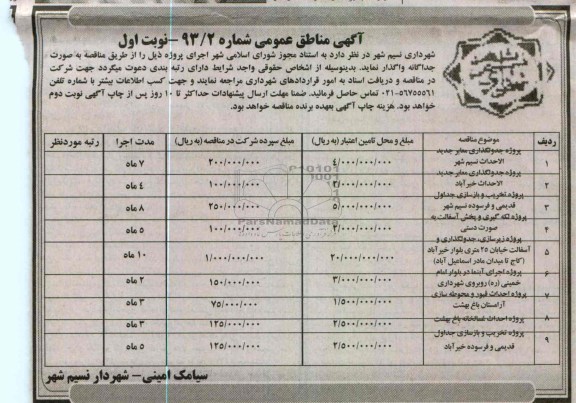 آگهی مناطق عمومی شماره ۹۳/۲ - نوبت اول
شهرداری نسیم شهر در نظر دارد به استناد مجوز شورای اسلامی شهر اجرای پروژه ذیل را از طریق مناقصه به صورت
جداگانه واگذار نماید. بدینوسیله از اشخاص حقوقی واجد شرایط دارای رتبه بندی دعوت میگردد جهت شرکت
در مناقصه و دریافت اسناد به امور قراردادهای شهرداری مراجعه نمایند و جهت کسب اطلاعات بیشتر با شماره تلفن
۰۲۱-۵۶۷۵۵۵۶۱ تماس حاصل فرمائید. ضمنا مهلت ارسال پیشنهادات حداکثر تا ۱۰ روز پس از چاپ آگهی نوبت دوم
خواهد بود. هزینه چاپ آگهی بعهده برنده مناقصه خواهد بود.
ردیف موضوع مناقصه مبلغ و محل تامین اعتبار (به ریال) مبلغ سپرده شرکت در مناقصه (به ریال) مدت اجرا رتبه موردنظر
۱ پروژه جدولگذاری معابر جدید الاحداث نسیم شهر ۴/۰۰۰/۰۰۰/۰۰۰ ۲۰۰/۰۰۰/۰۰۰ ۷ ماه
۲ پروژه جدولگذاری معابر جدید الاحداث خیرآباد ۲/۰۰۰/۰۰۰/۰۰۰ ۱۰۰/۰۰۰/۰۰۰ ۴ ماه
۳ پروژه تخریب و بازسازی جداول قدیمی و فرسوده نسیم شهر ۵/۰۰۰/۰۰۰/۰۰۰ ۲۵۰/۰۰۰/۰۰۰ ۸ ماه
۴ پروژه لکه گیری و پخش آسفالت به صورت دستی ۲/۰۰۰/۰۰۰/۰۰۰ ۱۰۰/۰۰۰/۰۰۰ ۵ ماه
۵ پروژه زیرسازی، جدولگذاری و آسفالت خیابان ۲۵ متری بلوار خیرآباد (کاج تا میدان مادر اسماعیل آباد) ۲۰/۰۰۰/۰۰۰/۰۰۰ ۱/۰۰۰/۰۰۰/۰۰۰ ۱۰ ماه
۶ پروژه اجرای آبنما در بلوار امام خمینی (ره) روبروی شهرداری ۳/۰۰۰/۰۰۰/۰۰۰ ۱۵۰/۰۰۰/۰۰۰ ۲ ماه
۷ پروژه احداث قبور و محوطه سازی آرامستان باغ بهشت ۱/۵۰۰/۰۰۰/۰۰۰ ۷۵/۰۰۰/۰۰۰ ۳ ماه
۸ پروژه احداث غسالخانه باغ بهشت ۲/۵۰۰/۰۰۰/۰۰۰ ۱۲۵/۰۰۰/۰۰۰ ۳ ماه
۹ پروژه تخریب و بازسازی جداول قدیمی و فرسوده خیرآباد ۲/۵۰۰/۰۰۰/۰۰۰ ۱۲۵/۰۰۰/۰۰۰ ۵ ماه
ParsNamadData
سیامک امینی - شهردار نسیم شهر